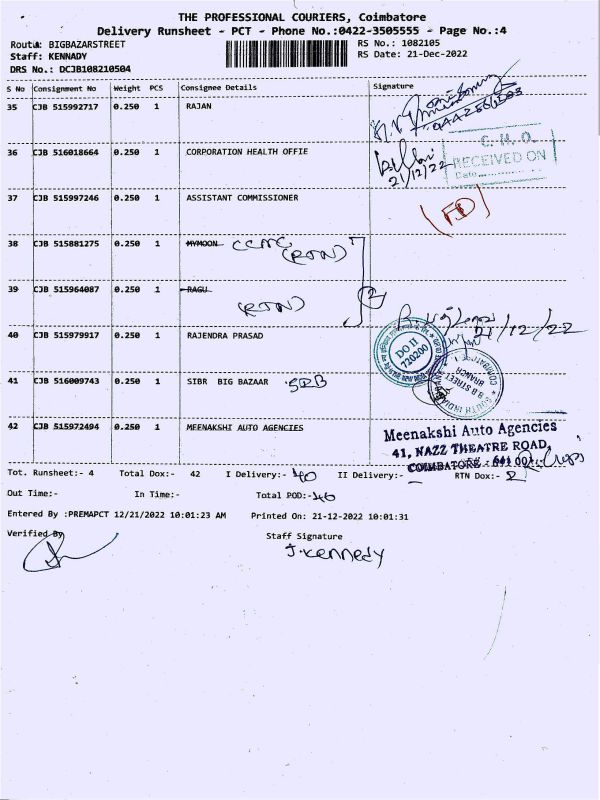 THE PROFESSIONAL COURIERS, Coimbatore
Delivery Runsheet - PCT - Phone No.:0422-3505555 - Page No.:4
Route: BIGBAZARSTREET RS No.: 1082105
Staff: KENNADY RS Date: 21-Dec-2022
DRS No.: DCJB108210504
S No Consignment No Weight PCS Consignee Details Signature
35 CJB 515992717 0.250 1 RAJAN
36 CJB 516018664 0.250 1 CORPORATION HEALTH OFFIE
21/12/22
C. H. O.
RECEIVED ON
Date
37 CJB 515997246 0.250 1 ASSISTANT COMMISSIONER
38 CJB 515881275 0.250 1 MYMOON CCMC
(RTN)
39 CJB 515964087 0.250 1 RAGU
(RTN) 2
21/12/22
40 CJB 515979917 0.250 1 RAJENDRA PRASAD
DO II
720200
41 CJB 516009743 0.250 1 SIBR BIG BAZAAR SRB
B B STREET
BRANCH
42 CJB 515972494 0.250 1 MEENAKSHI AUTO AGENCIES
Meenakshi Auto Agencies
41, NAZZ THEATRE ROAD,
COIMBATORE - 641 001
Tot. Runsheet:- 4 Total Dox:- 42 I Delivery:- 40 II Delivery:- RTN Dox:- 2
Out Time:- In Time:- Total POD:- 40
Entered By :PREMAPCT 12/21/2022 10:01:23 AM Printed On: 21-12-2022 10:01:31
Verified By Staff Signature
J.Kennedy